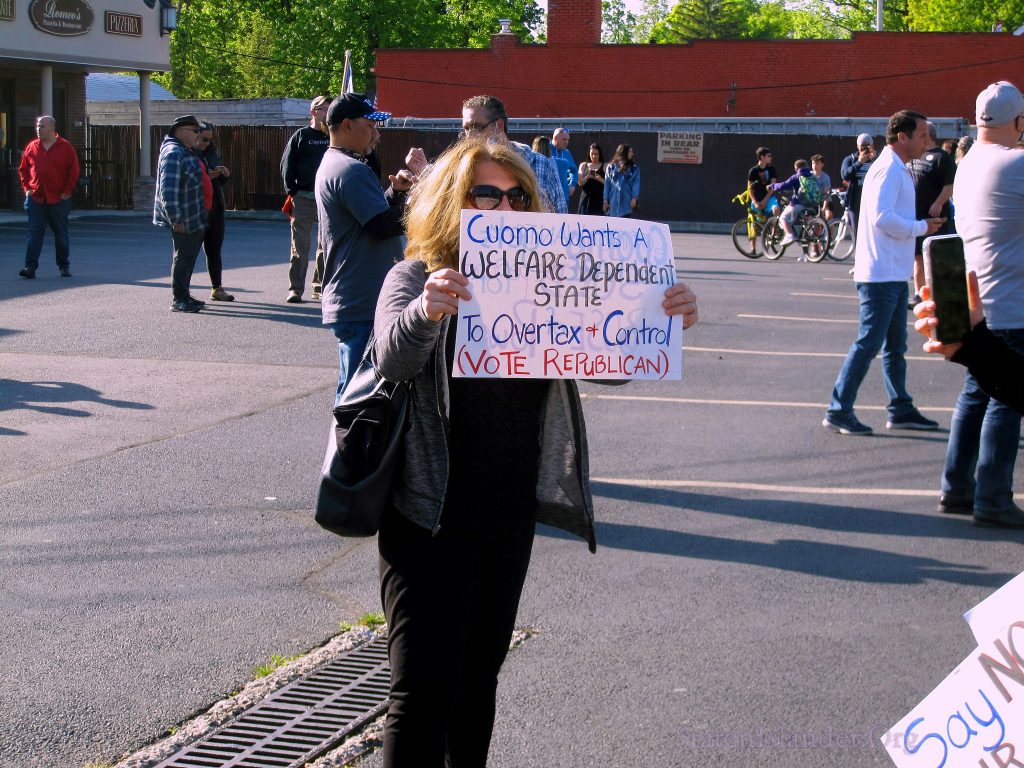 Romeo's
PIZZERIA
PARKING
IN REAR
Cuomo Wants A
WELFARE Dependent
STATE
To Overtax + Control
(VOTE REPUBLICAN)
Say NO
StatenIslander.Org